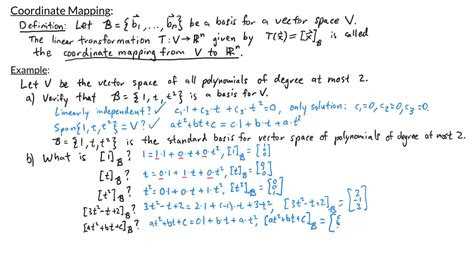 Coordinate Mapping:
Definition: Let B = {b⃗₁, ..., b⃗ₙ} be a basis for a vector space V.
The linear transformation T: V → ℝⁿ given by T(x⃗) = [x⃗]_B is called
the coordinate mapping from V to ℝⁿ.
Example:
Let V be the vector space of all polynomials of degree at most 2.
a) Verify that B = {1, t, t²} is a basis for V.
Linearly independent? ✓ c₁·1 + c₂·t + c₃·t² = 0, only solution: c₁=0, c₂=0, c₃=0.
Span{1, t, t²} = V? ✓ at²+bt+c = c·1 + b·t + a·t²
B = {1, t, t²} is the standard basis for vector space of polynomials of degree at most 2.
b) What is [1]_B? 1 = 1·1 + 0·t + 0·t², [1]_B = [1 0 0]
[t]_B? t = 0·1 + 1·t + 0·t², [t]_B = [0 1 0]
[t²]_B? t² = 0·1 + 0·t + 1·t², [t²]_B = [0 0 1]
[3t²-t+2]_B? 3t²-t+2 = 2·1 + (-1)·t + 3·t², [3t²-t+2]_B = [2 -1 3]
[at²+bt+c]_B? at²+bt+c = c·1 + b·t + a·t², [at²+bt+c]_B = [c